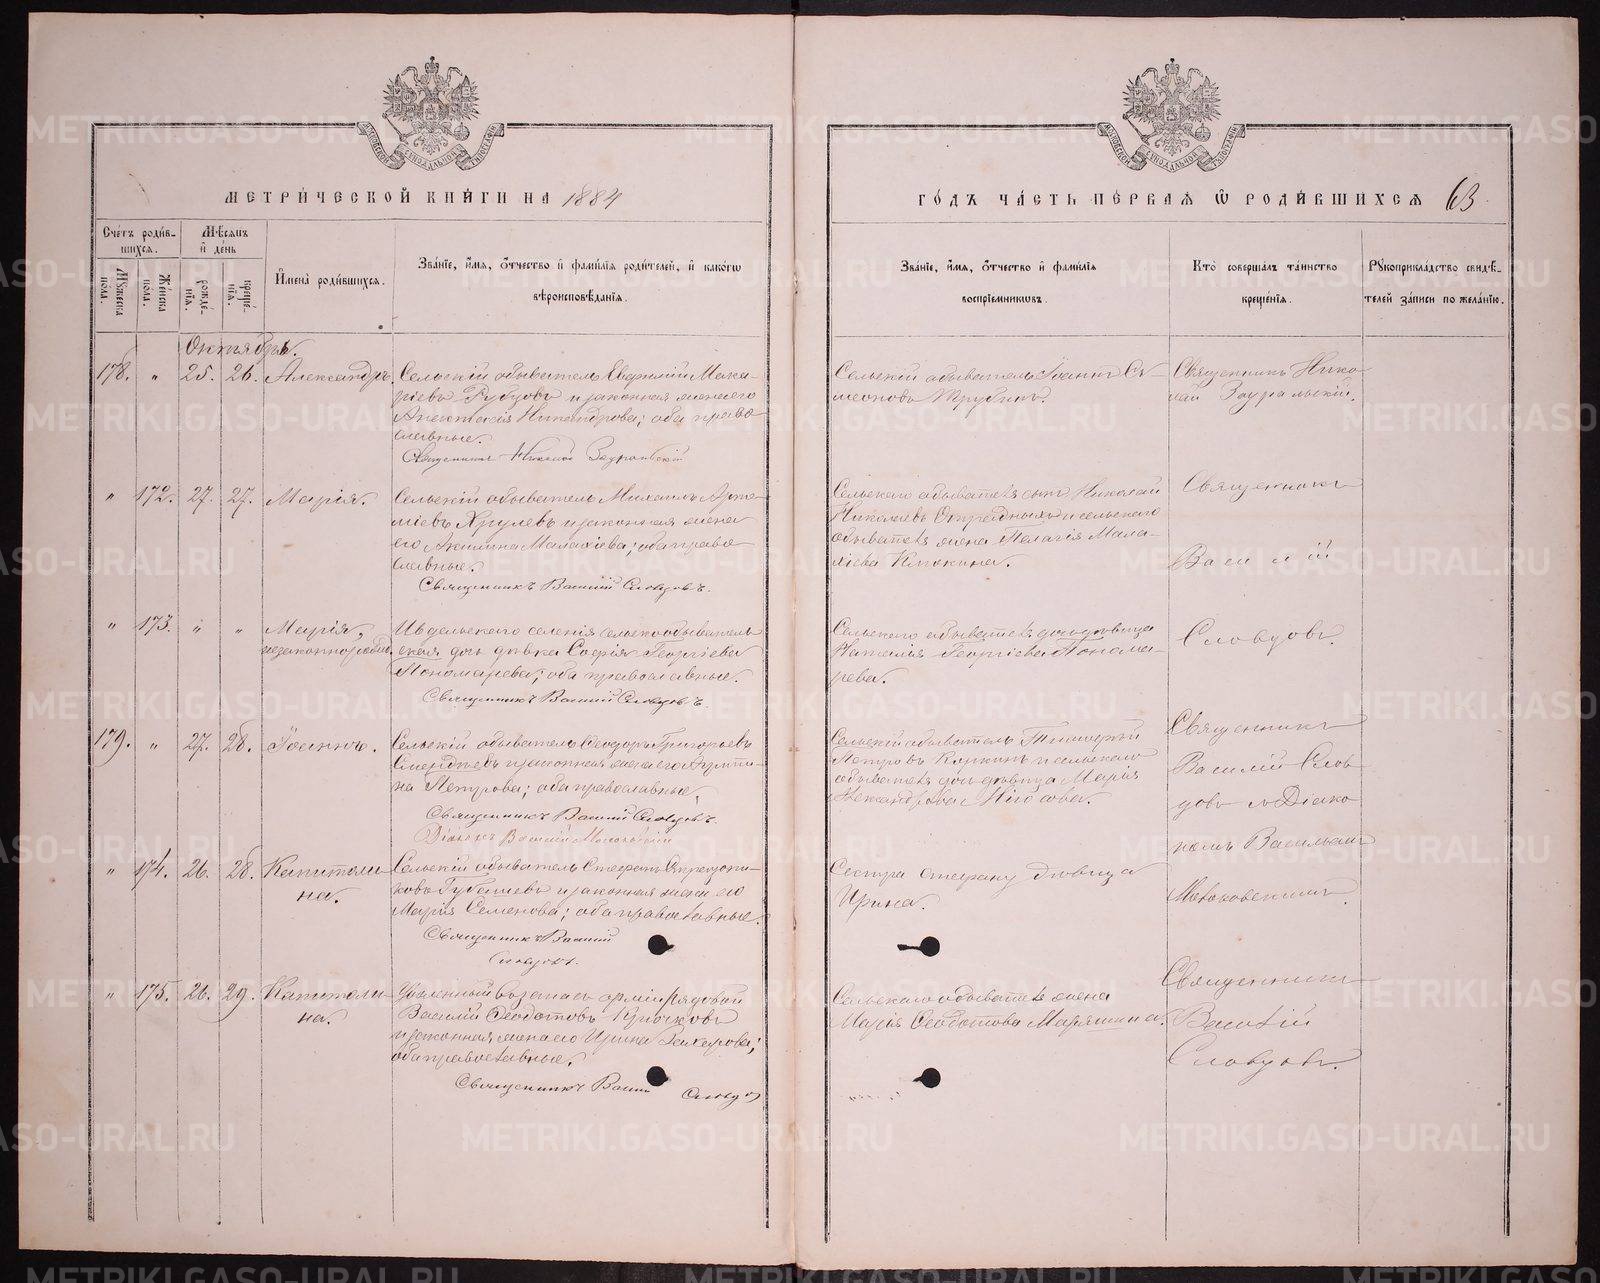 МЕТРИЧЕСКОЙ КНИГИ НА 1884
ГОДЪ ЧАСТЬ ПЕРВАЯ Ѿ РОДИВШИХСЯ 63
Счетъ родив-
шихся.
Мѣсяцъ
и день
Мужеска
пола.
Женска
пола.
рожде-
нія.
креще-
нія.
Имена родившихся.
Званіе, имя, отчество и фамилія родителей, и какогѡ
вѣроисповѣданія.
Званіе, имя, отчество и фамилія
воспріемниковъ.
Кто совершалъ таинство
крещенія.
Рукоприкладство свидѣ-
телей записи по желанію.
Октябрь.
178. " 25. 26. Александръ.
Сельскій обыватель Евгеній Мака-
ріевъ Рубцовъ и законная жена его
Анастасія Никандрова; оба право
славные.
Священникъ Николай Зауральскій
Сельскій обыватель Іоаннъ Си-
меоновъ Трубинъ.
Священникъ Нико-
лай Зауральскій.
" 172. 27. 27. Марія.
Сельскій обыватель Михаилъ Арте-
міевъ Хрулевъ и законная жена
его Акилина Малахіева; оба право
славные.
Священникъ Василій Словцовъ.
Сельскаго обывателя сынъ Николай
Николаевъ и сельскаго
обывателя жена Пелагія Мала-
хіева Клюкина.
Священникъ
Василій
Словцовъ.
" 173. " " Марія,
незаконнорожд.
Ивдельскаго селенія сельскообыватель
ская дочь дѣвка Софія Георгіева
Пономарева; оба православные.
Священникъ Василій Словцовъ.
Сельскаго обывателя дочь дѣвица
Наталія Георгіева Понома-
рева.
179. " 27. 28. Іоаннъ.
Сельскій обыватель Ѳеодоръ Григорьевъ
и законная жена его
на Петрова; оба православные.
Священникъ Василій Словцовъ.
Діаконъ Василій
Сельскій обыватель Тимоѳей
Петровъ и сельскаго
обывателя дочь дѣвица Марія
Александрова Носова.
Священникъ
Василій Слов
цовъ съ Діако
номъ Васильемъ
" 174. 26. 28. Капитоли-
на.
Сельскій обыватель Стефанъ
ковъ и законная жена его
Марія Семенова; оба православные.
Священникъ Василій
Словцовъ.
Сестра Стефану дѣвица
Ирина.
" 175. 26. 29. Капитоли-
на.
Уволенный въ запасъ арміи рядовой
Василій Ѳеодотовъ Крючковъ
и законная жена его Ирина Захарова;
оба православные.
Священникъ Василій Словцовъ
Сельскаго обывателя жена
Марія Ѳеодотова
Священникъ
Василій
Словцовъ.
METRIKI.GASO-URAL.RU